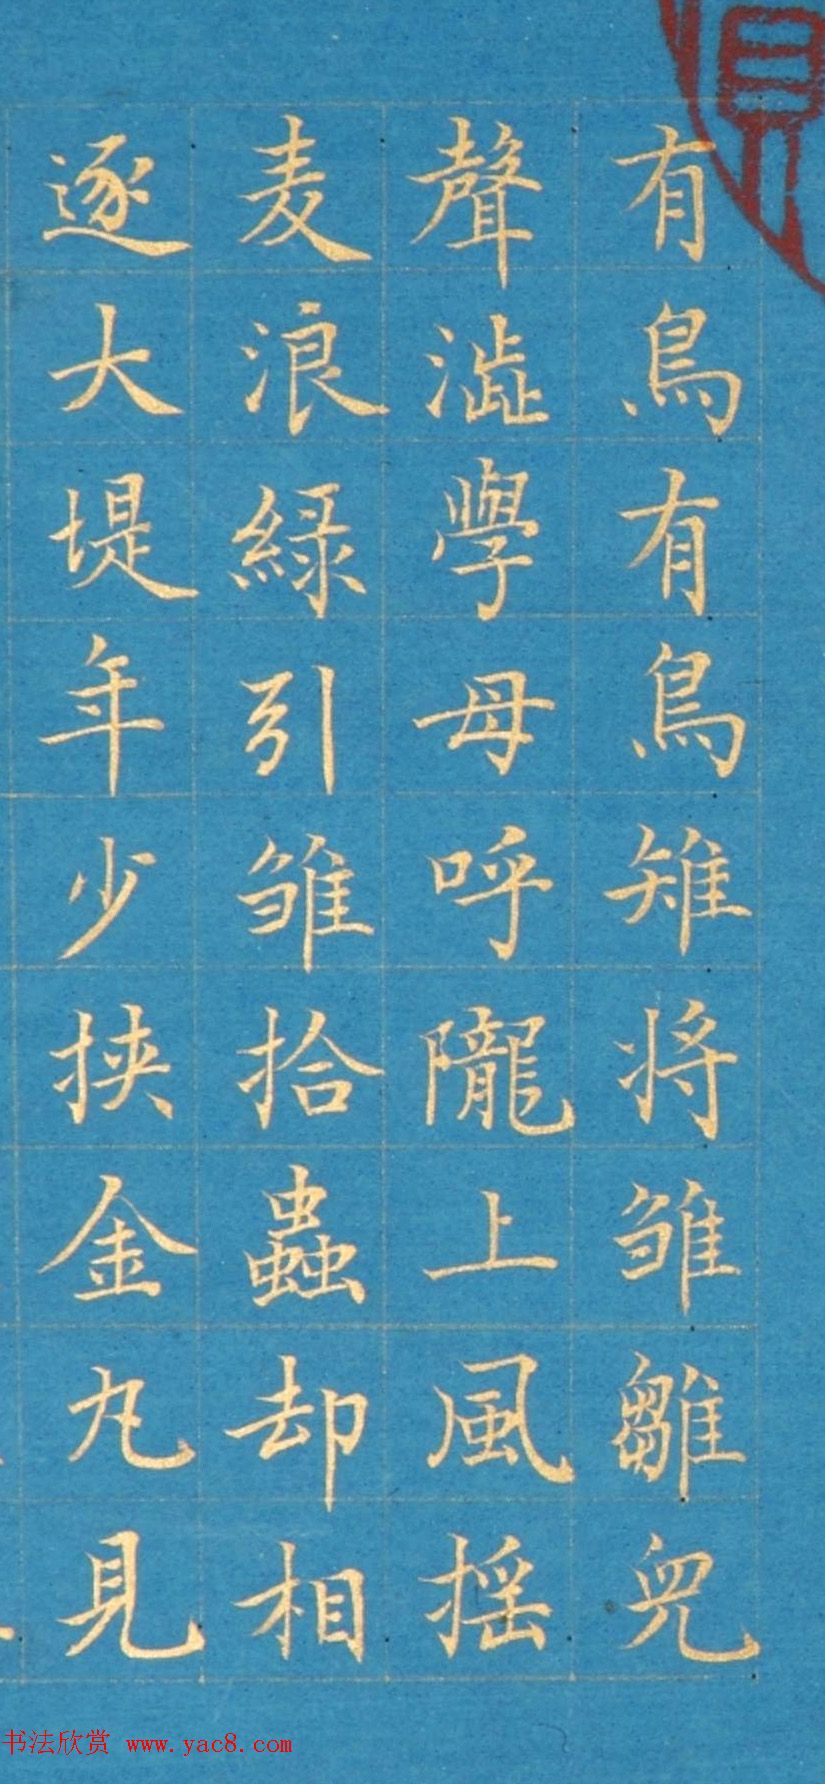 有鳥有鳥雉将雏雛兒
聲澁學母呼隴上風揺
麦浪綠引雏拾蟲却相
逐大堤年少挟金丸見
书法欣赏 www.yac8.com